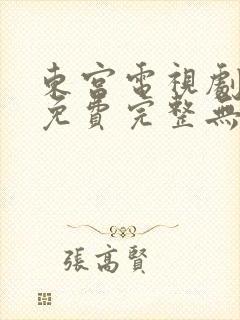 東宮電視劇
免費完整無
張高賢